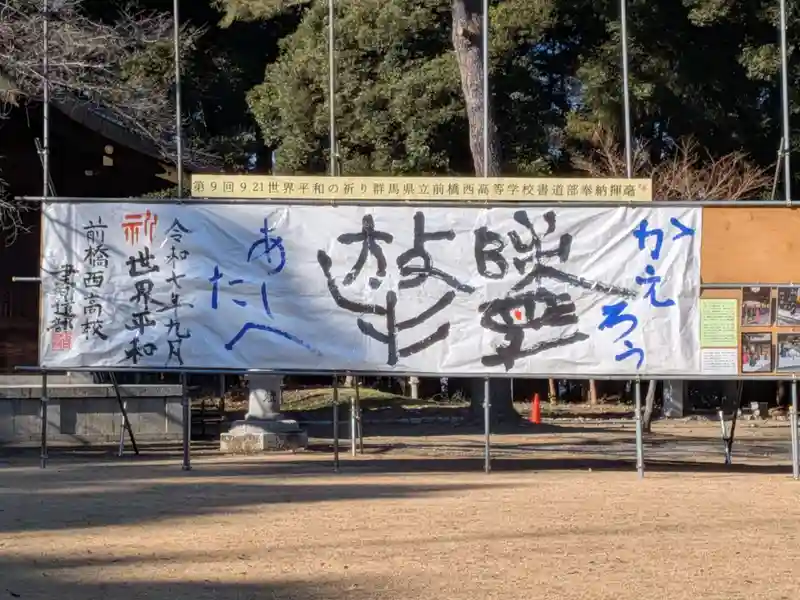 第9回 9 21世界平和の祈り 群馬県立前橋西高等学校書道部奉納揮毫
かえろう
あしたへ
令和七年九月
祈世界平和
前橋西高校
書道部